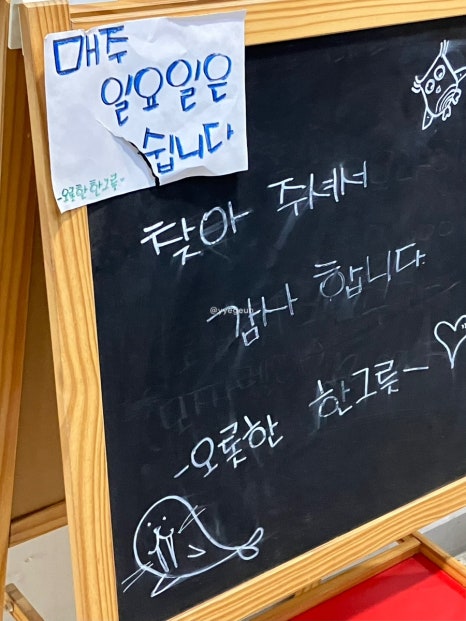 매주
일요일은
쉽니다
-오롯한 한그릇-
찾아 주셔서
감사 합니다
-오롯한 한그릇-
@yyegeun_